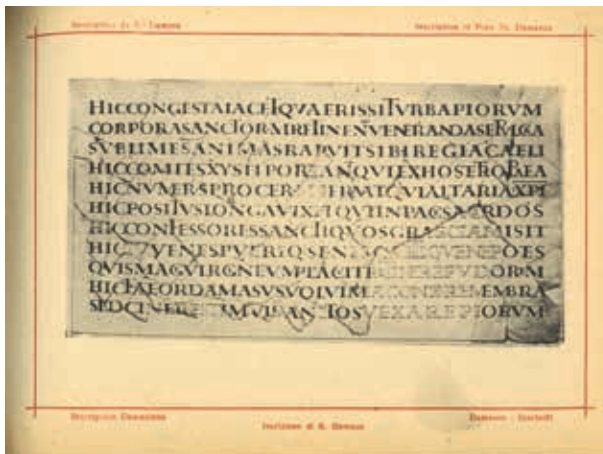 Inscription of Pope St. Damasus
HICCONGESTAIACETQVAERISSITVRBAPIORVM
CORPORASANCTORVMRETINENTVENERANDASEPVLCRA
SVBLIMESANIMASRAPVITSIBIREGIACAELI
HICCOMITESXYSTIPORTANTQVIEXHOSTETROPAEA
HICNVMERVSPROCERVMSERVATQVIALTARIAXPI
HICPOSITVSLONGAVIXITQVIINPACESACERDOS
HICCONFESSORESSANCTIQVOSGRAECIAMISIT
HICIVVENESPVERIQSENESCASTIQVENEPOTES
QVISMAGEVIRGINEVMPLACVITRETINEREPVDOREM
HICFATEORDAMASVSVOLVIMEACONDEREMEMBRA
SEDCINERESTIMVISANCTOSVEXAREPIORVM
Iscrizione di S. Damaso
Damasus - Inschrift